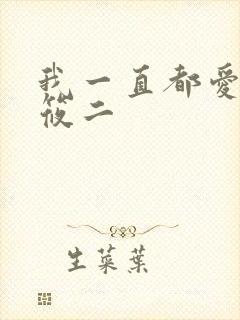 我一直都愛
筱二
生菜葉